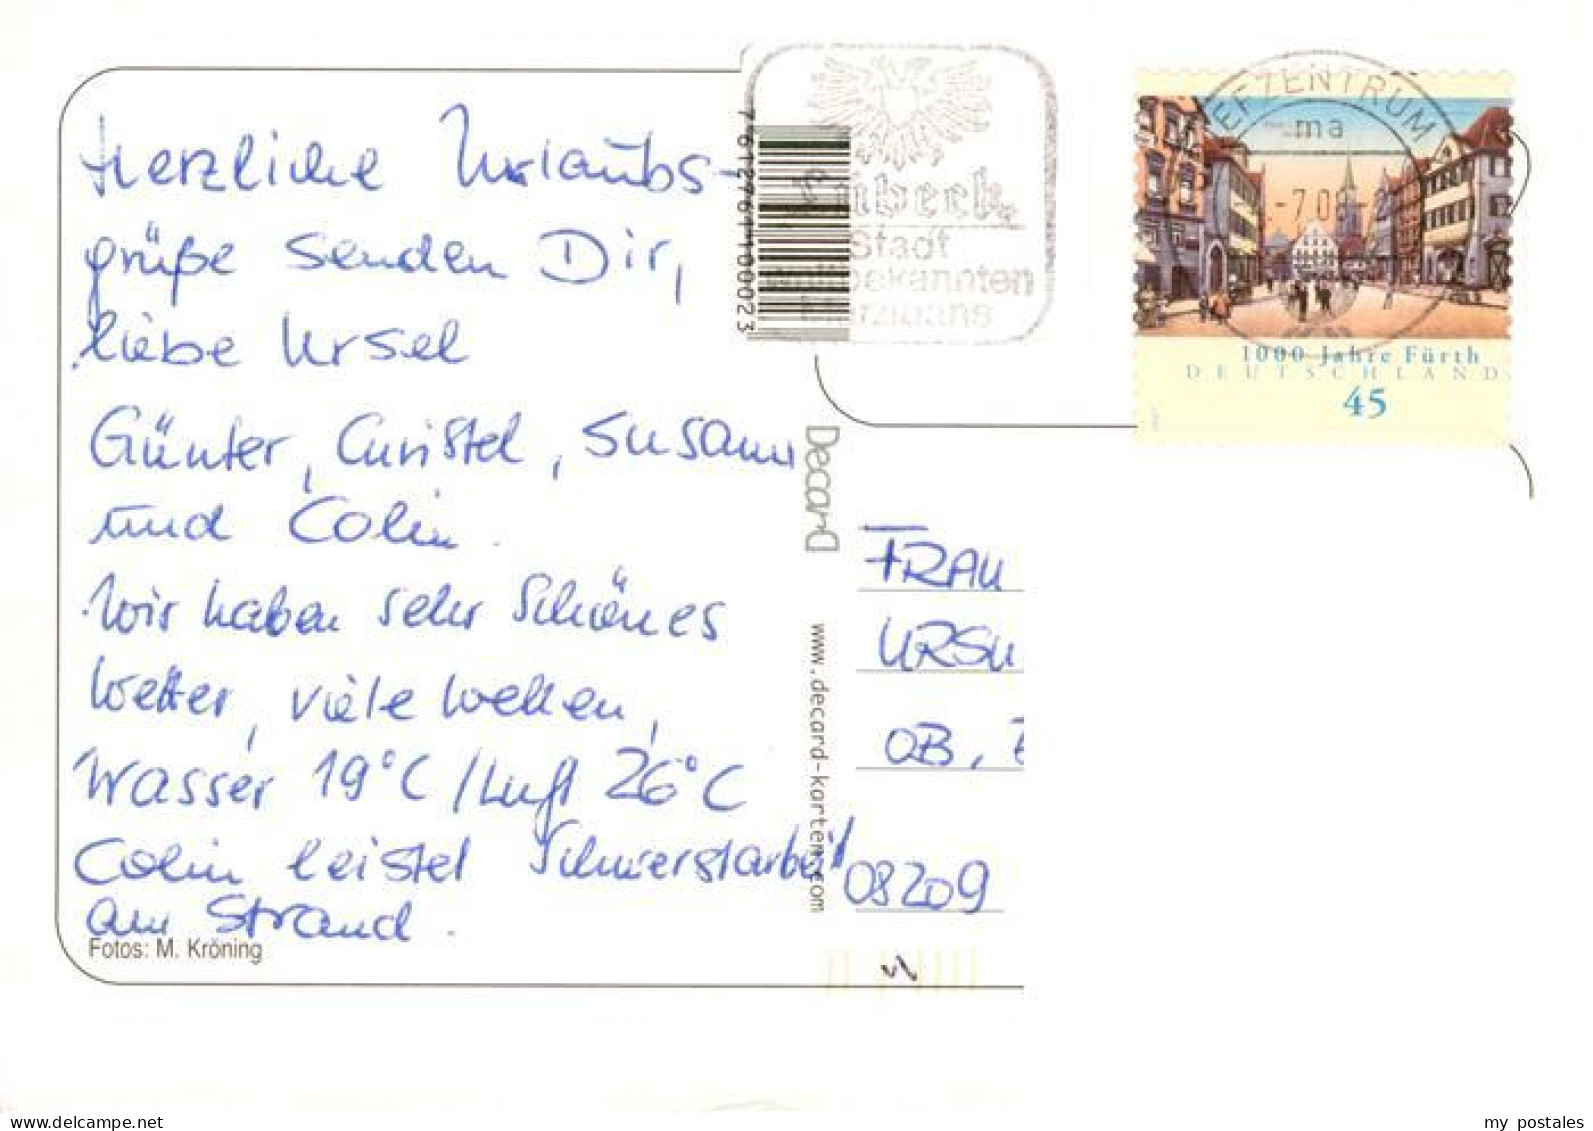 Herzliche Urlaubs-
grüße senden Dir,
liebe Ursel
Günter, Christel, Susann
und Colin.
Wir haben sehr schönes
Wetter, viele Wellen,
Wasser 19°C / Luft 26°C
Colin leistet Schwerstarbeit
am Strand.
Fotos: M. Kröning
7612761100023
Decard
www.decard-karten.com
Lübeck
Stadt
weltbekannten
Marzipans
EFZENTRUM
ma
-7.08-2
1000 Jahre Fürth
DEUTSCHLAND
45
FRAU
URSU
OB,
08209
my postales